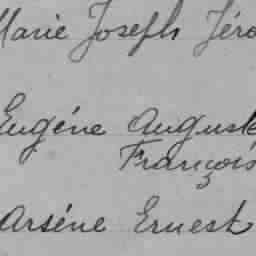 Marie Joseph Jéro
Eugéne Auguste
François
Arséne Ernest